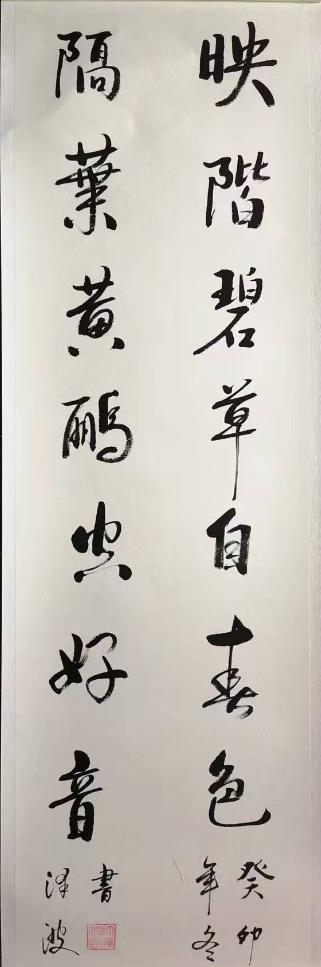 映階碧草自春色
隔葉黄鸝空好音
癸卯
年冬
書
澤波